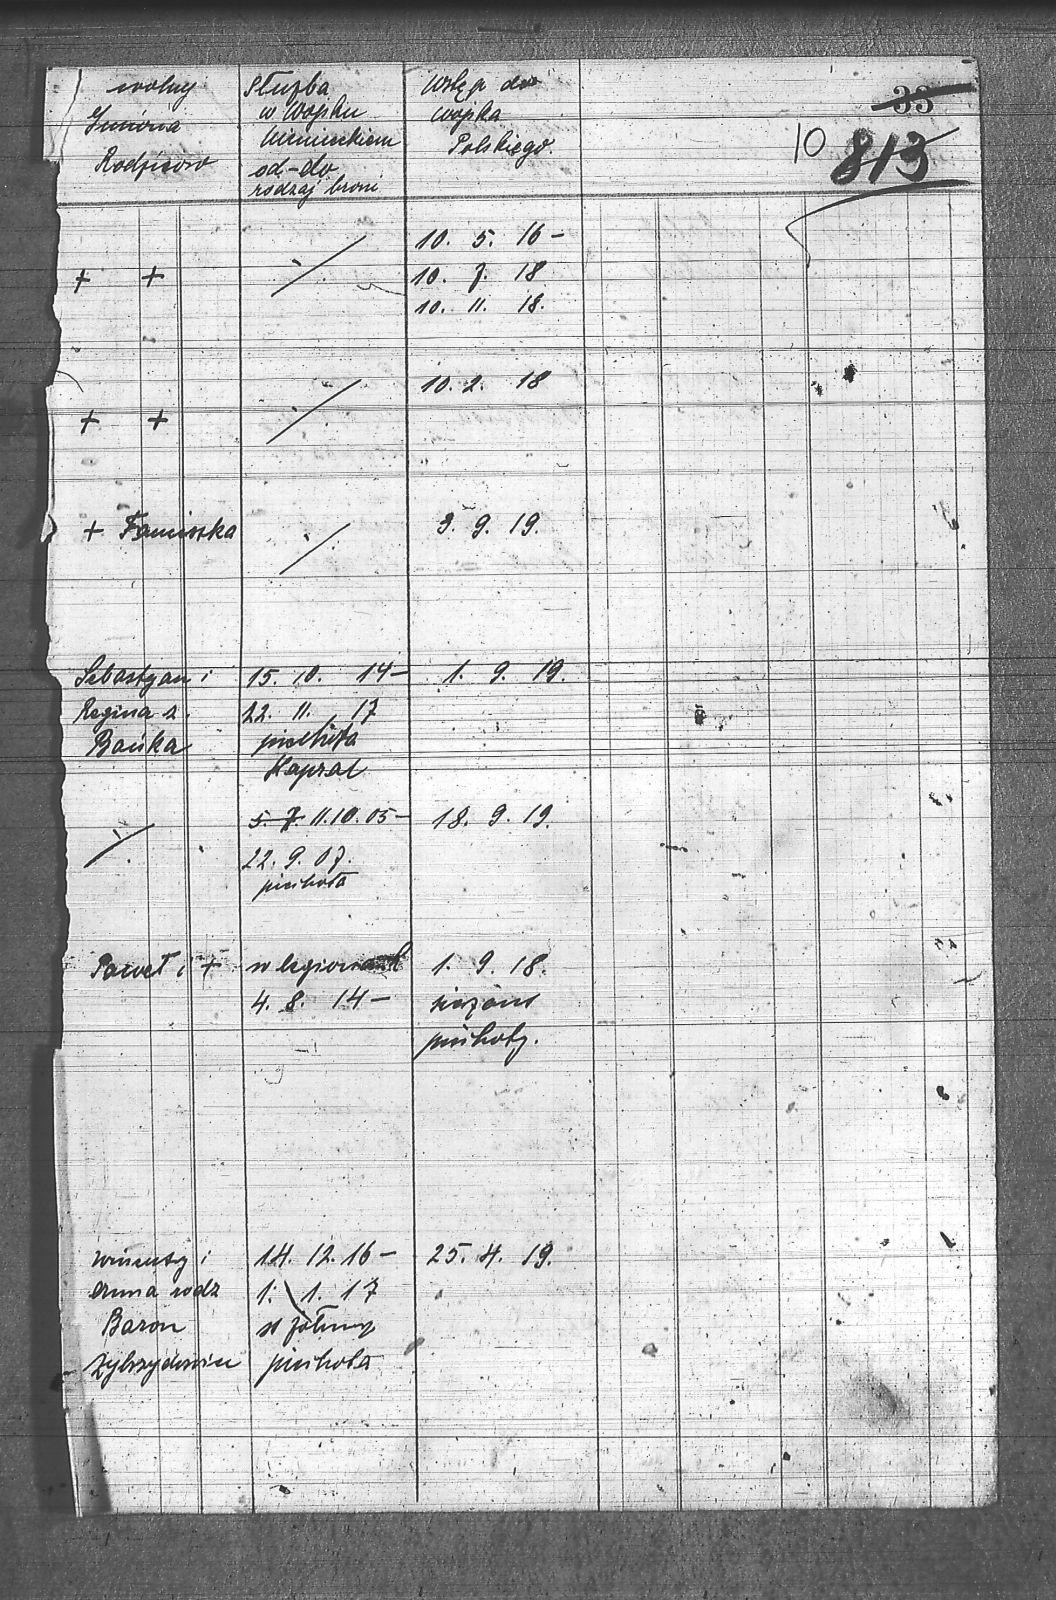 wolny
Imiona
Rodziców
Służba
w Wojsku
Niemieckiem
od-do
rodzaj broni
Wstęp do
wojska
Polskiego.
33
10 813
10. 5. 16 –
+ + ./. 10. 7. 18
10. 11. 18.
10. 2. 18
+ + ./.
+ Franciszka ./. 3. 9. 19.
Sebastyan i 15. 10. 14 – 1. 9. 19.
Regina z. 22. 11. 17
Bańka piechota
Kapral
5. 7. 11.10.05 – 18. 9. 19.
./. 22. 9. 07.
piechota
Paweł i + w legionach 1. 9. 18.
4. 8. 14 – sierżant
piechoty.
Wincenty i 14. 12. 16 – 25. 4. 19.
Anna rodz 1. 1. 17
Baron st żołnierz
piechota